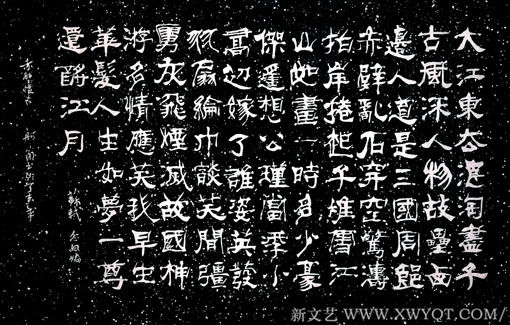 大江東去浪淘盡千
古風流人物故壘西
邊人道是三國周郎
赤壁亂石穿空驚濤
拍岸捲起千堆雪江
山如畫一時多少豪
傑遙想公瑾當年小
喬初嫁了雄姿英發
羽扇綸巾談笑間彊
虜灰飛煙滅故國神
游多情應笑我早生
華髮人生如夢一尊
還酹江月
蘇軾 念奴嬌
赤壁懷古
新文艺 WWW.XWYQT.COM/